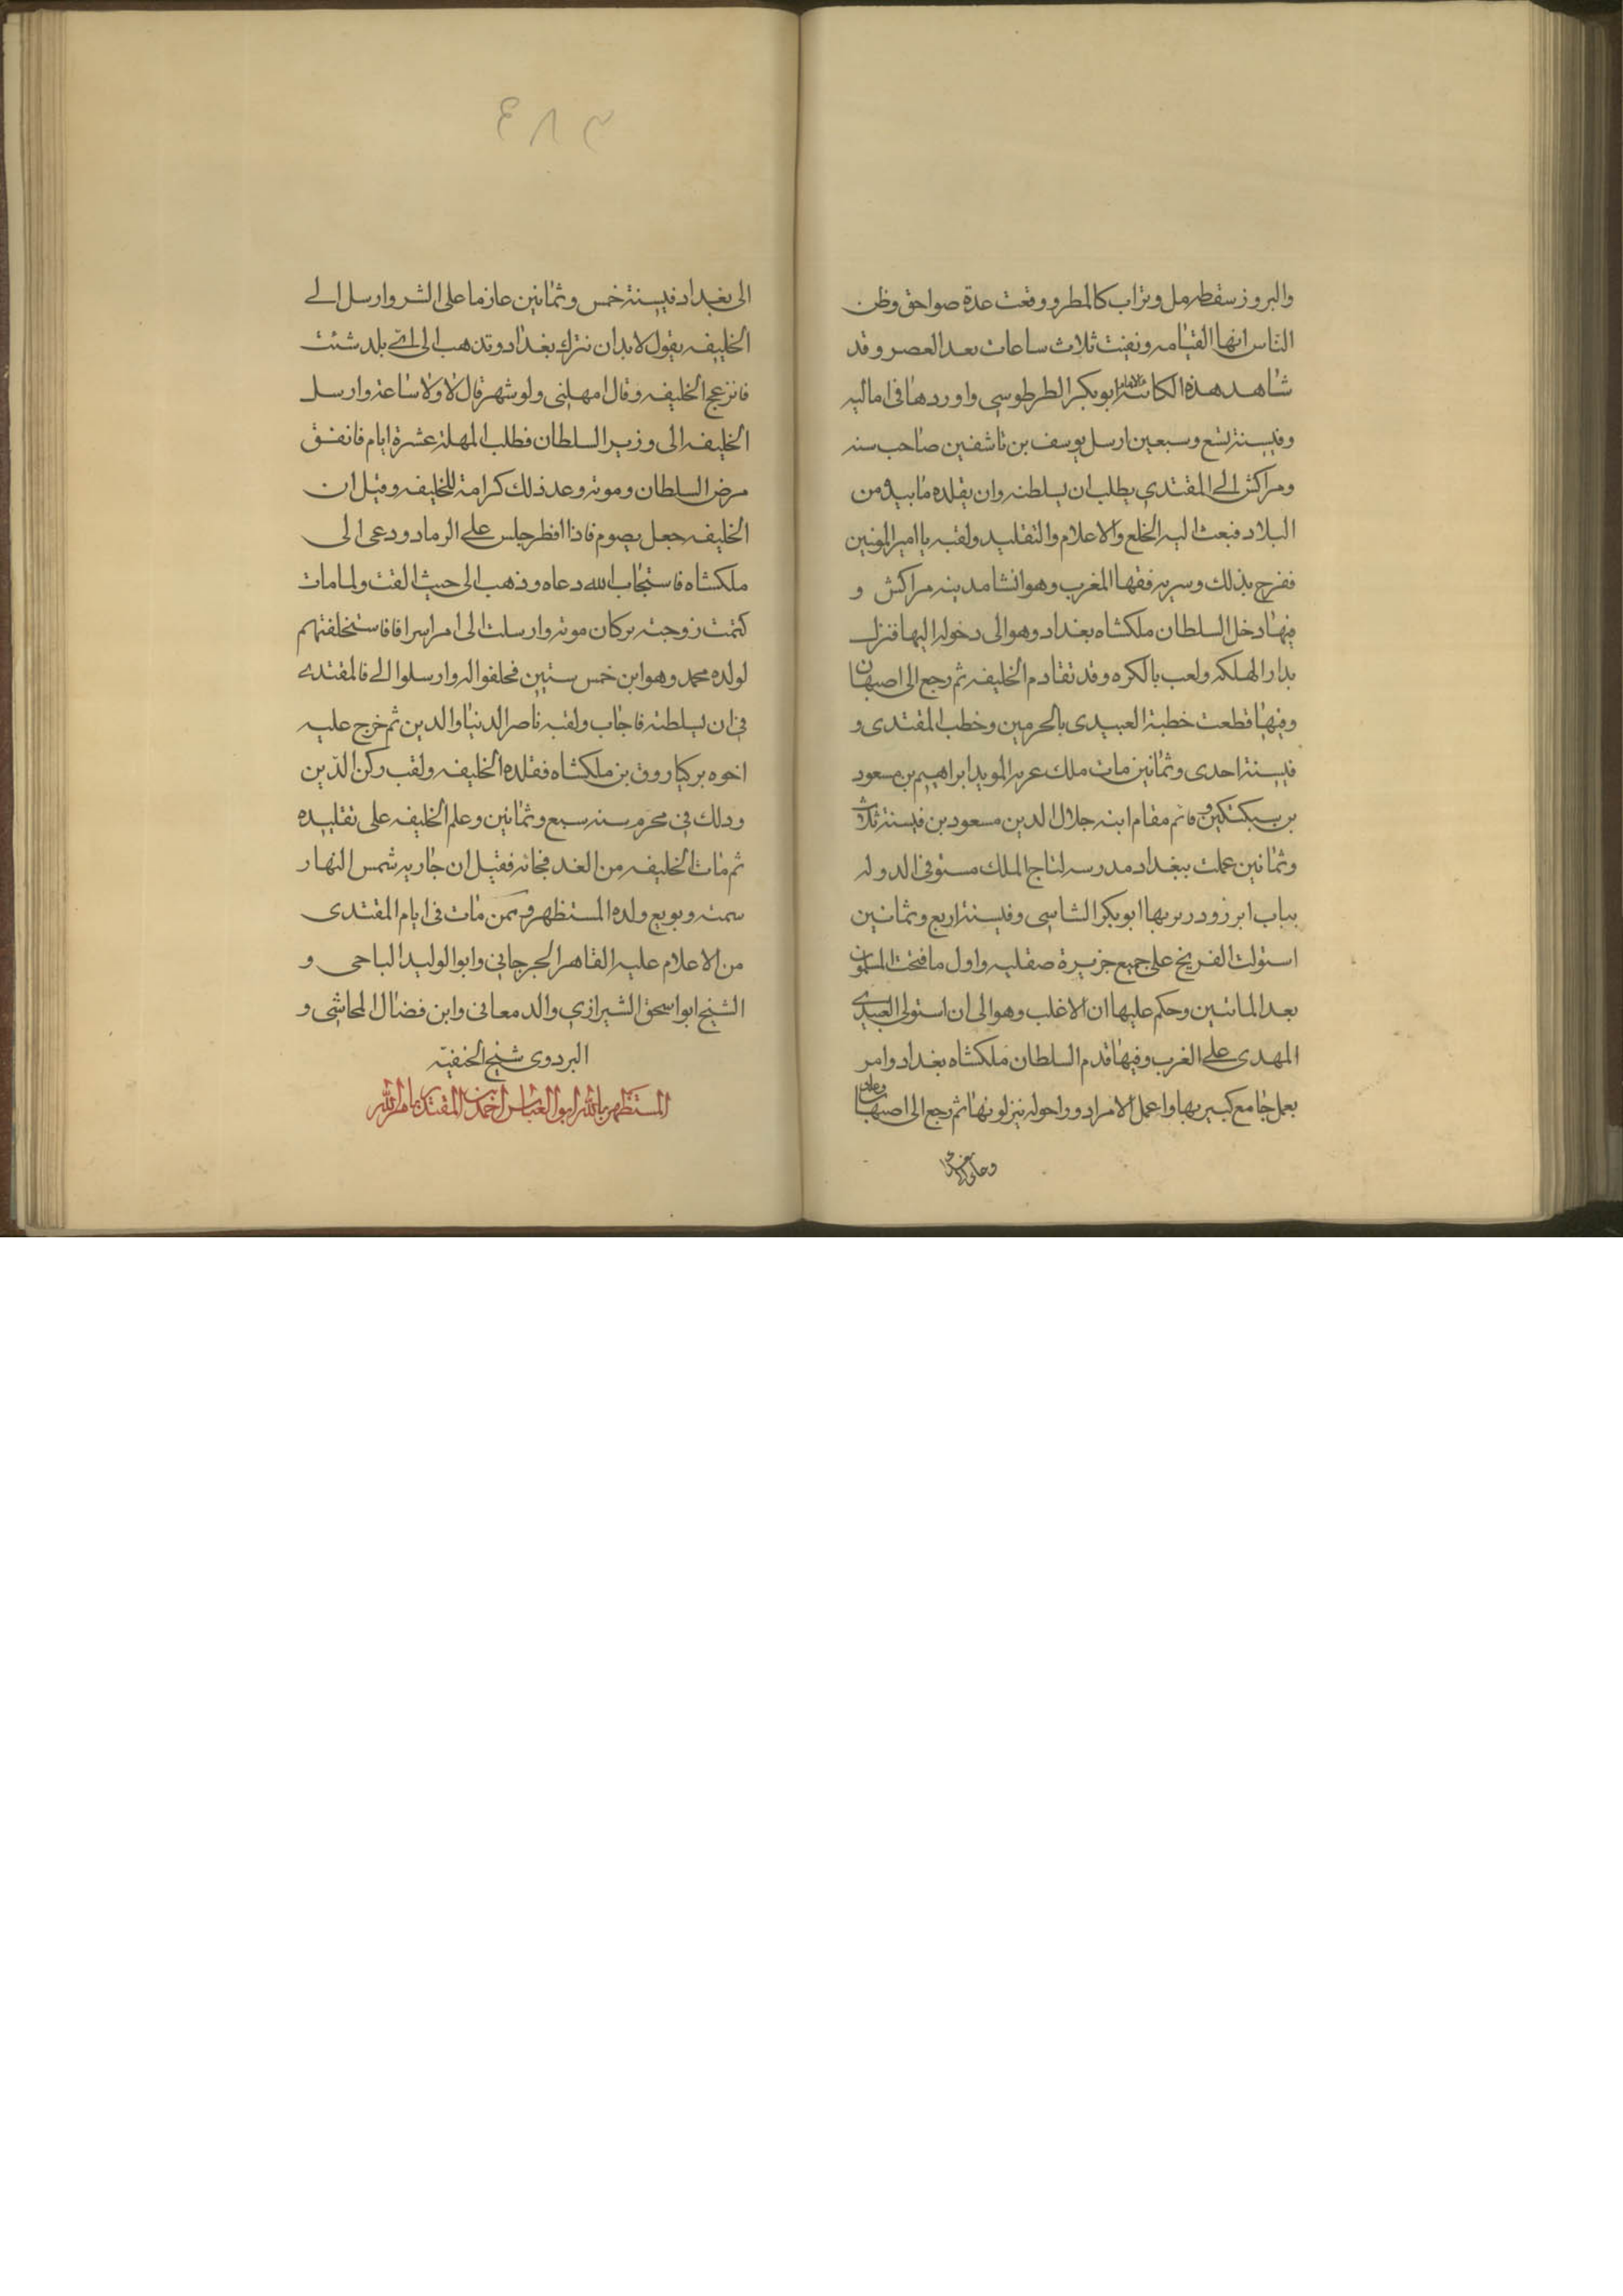 والبروز سقط رمل وتراب كالمطر ووقعت عدة صواحق وظن
الناس انها القيامه وبقيت ثلاث ساعات بعد العصر وقد
شاهد هذه الكائنة الامام ابو بكر الطرطوسي واوردها في اماليه
وفي سنة تسع وسبعين ارسل يوسف بن تاشفين صاحب سنه
ومراكش الى المقتدي يطلب ان يسلطنه وان يقلده ما بيده من
البلاد فبعث اليه الخلع والاعلام والتقليد ولقبه باامير المومنين
ففرح بذلك وسر به فقها المغرب وهو انشا مدينه مراكش و
فيها دخل السلطان ملكشاه بغداد وهو الى دخوله اليها فنزل
بدار الملكه ولعب بالكره وقد تقادم الخليفه ثم رجع الى اصبهان
وفيها قطعت خطبة العبيدى بالحرمين وخطب المقتدى و
في سنة احدى وثمانين مات ملك عربه المويد ابراهيم بن مسعود
بن سبكتكين وقام مقام ابنه جلال الدين مسعود بن في سنة ثلاث
وثمانين عملت ببغداد مدرسه لتاج الملك مستوفى الدوله
بباب ابرزو در بها ابو بكر الشاسى وفي سنة اربع وثمانين
استولت الفرنج على جميع جزيرة صقليه واول ما فتحت المسلمون
بعد الماتين وحكم عليها ان الاغلب وهو الى ان استولى العبيدى
المهدى على الغرب وفيها قدم السلطان ملكشاه بغداد وامر
بعمل جامع كبير بها واعمل الامرا دورا حوله ينزلونها ثم رجع الى اصبهان وعاد
٣٨٤
الى بغداد في سنة خمس وثمانين عازما على الشر وارسل الى
الخليفه يقول لا بد ان تترك بغداد وتذهب الى اى بلد شئت
فانزعج الخليفه وقال امهلنى ولو شهر قال لا ولا ساعة وارسل
الخليفه الى وزير السلطان فطلب المهلة عشرة ايام فاتفق
مرض السلطان وموته وعد ذلك كرامة للخليفه وقيل ان
الخليفه جعل يصوم فاذا افطر جلس على الرماد ودعى الى
ملكشاه فاستجاب الله دعاه وذهب الى حيث القت ولما مات
كتمت زوجته بركان موته وارسلت الى امرا سرا فاستخلفتهم
لولده محمد وهو ابن خمس ستين فحلفوا له وارسلوا الى فالمقتدى
في ان يسلطنه فاجاب ولقبه ناصر الدنيا والدين ثم خرج عليه
اخوه بركياروق بن ملكشاه فقلده الخليفه ولقب ركن الدين
وذلك في محرم سنه سبع وثمانين وعلم الخليفه على تقليده
ثم مات الخليفه من الغد فجاته فقيل ان جاريه شمس النهار
سمته وبويع ولده المستظهر وممن مات فى ايام المقتدى
من الاعلام عليه القاهر الجرجاني وابو الوليد الباجى و
الشيخ ابو اسحق الشيرازي والد معانى وابن فضال المحاشى و
البردوى شيخ الحنفيه
المستظهر بالله ابو العباس احمد بن المقتدى بامر الله